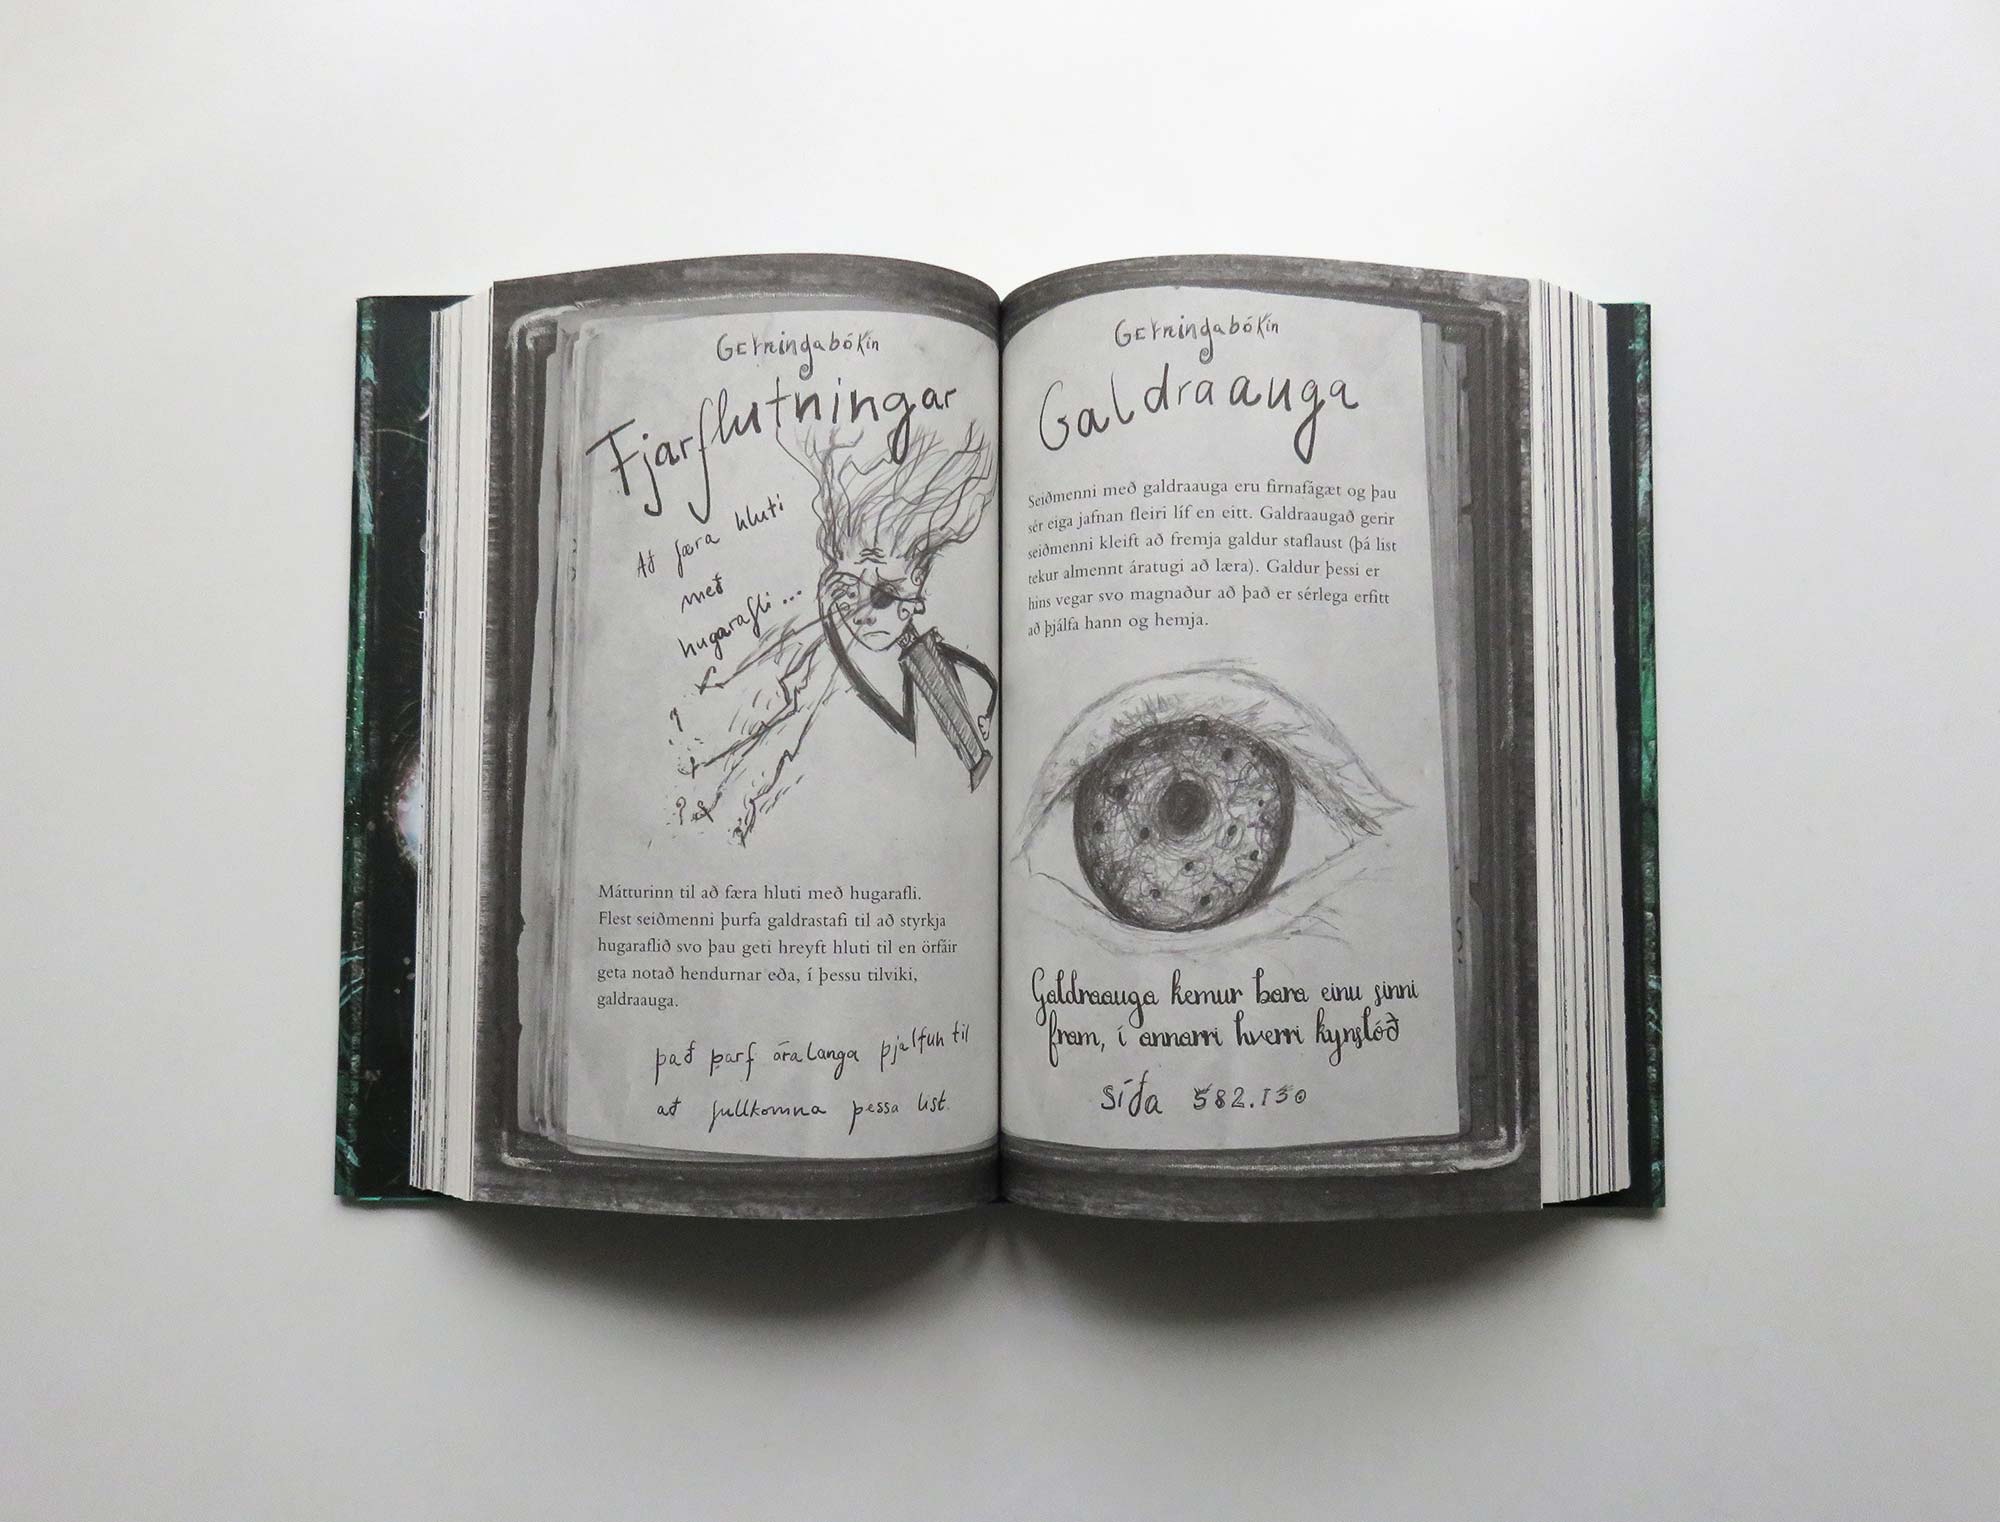 Gerningabókin
Fjarflutningar
Að færa hluti
með
hugarafli...
Mátturinn til að færa hluti með hugarafli.
Flest seiðmenni þurfa galdrastafi til að styrkja
hugaraflið svo þau geti hreyft hluti til en örfáir
geta notað hendurnar eða, í þessu tilviki,
galdraauga.
það þarf áralanga þjálfun til
að fullkomna þessa list.
Gerningabókin
Galdraauga
Seiðmenni með galdraauga eru firnafágæt og þau
sér eiga jafnan fleiri líf en eitt. Galdraaugað gerir
seiðmenni kleift að fremja galdur staflaust (þá list
tekur almennt áratugi að læra). Galdur þessi er
hins vegar svo magnaður að það er sérlega erfitt
að þjálfa hann og hemja.
Galdraauga kemur bara einu sinni
fram, í annarri hverri kynslóð
Síða 582.130